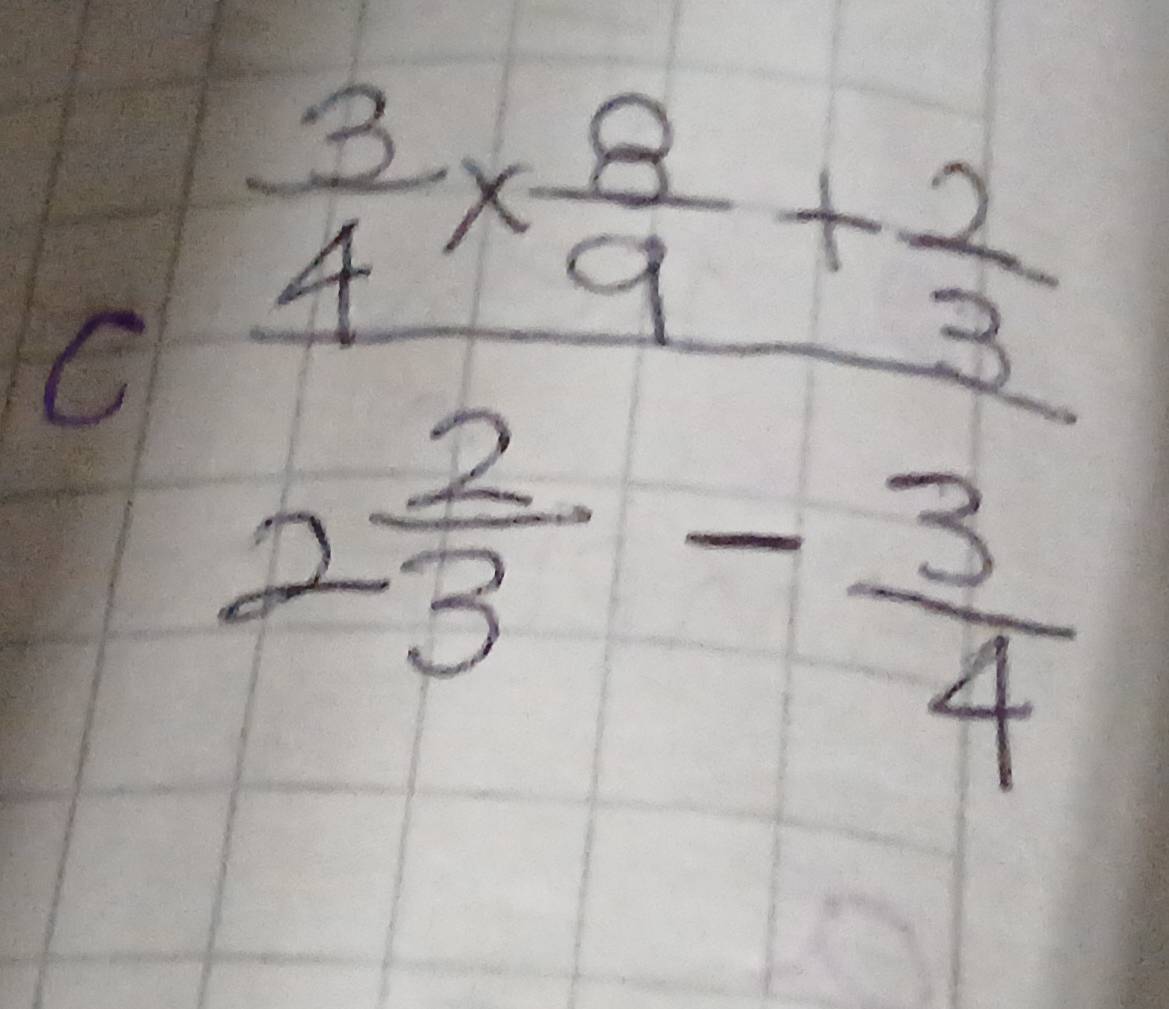 C
3/4 × 8/9 + 2/3
2 2/3 - 3/4